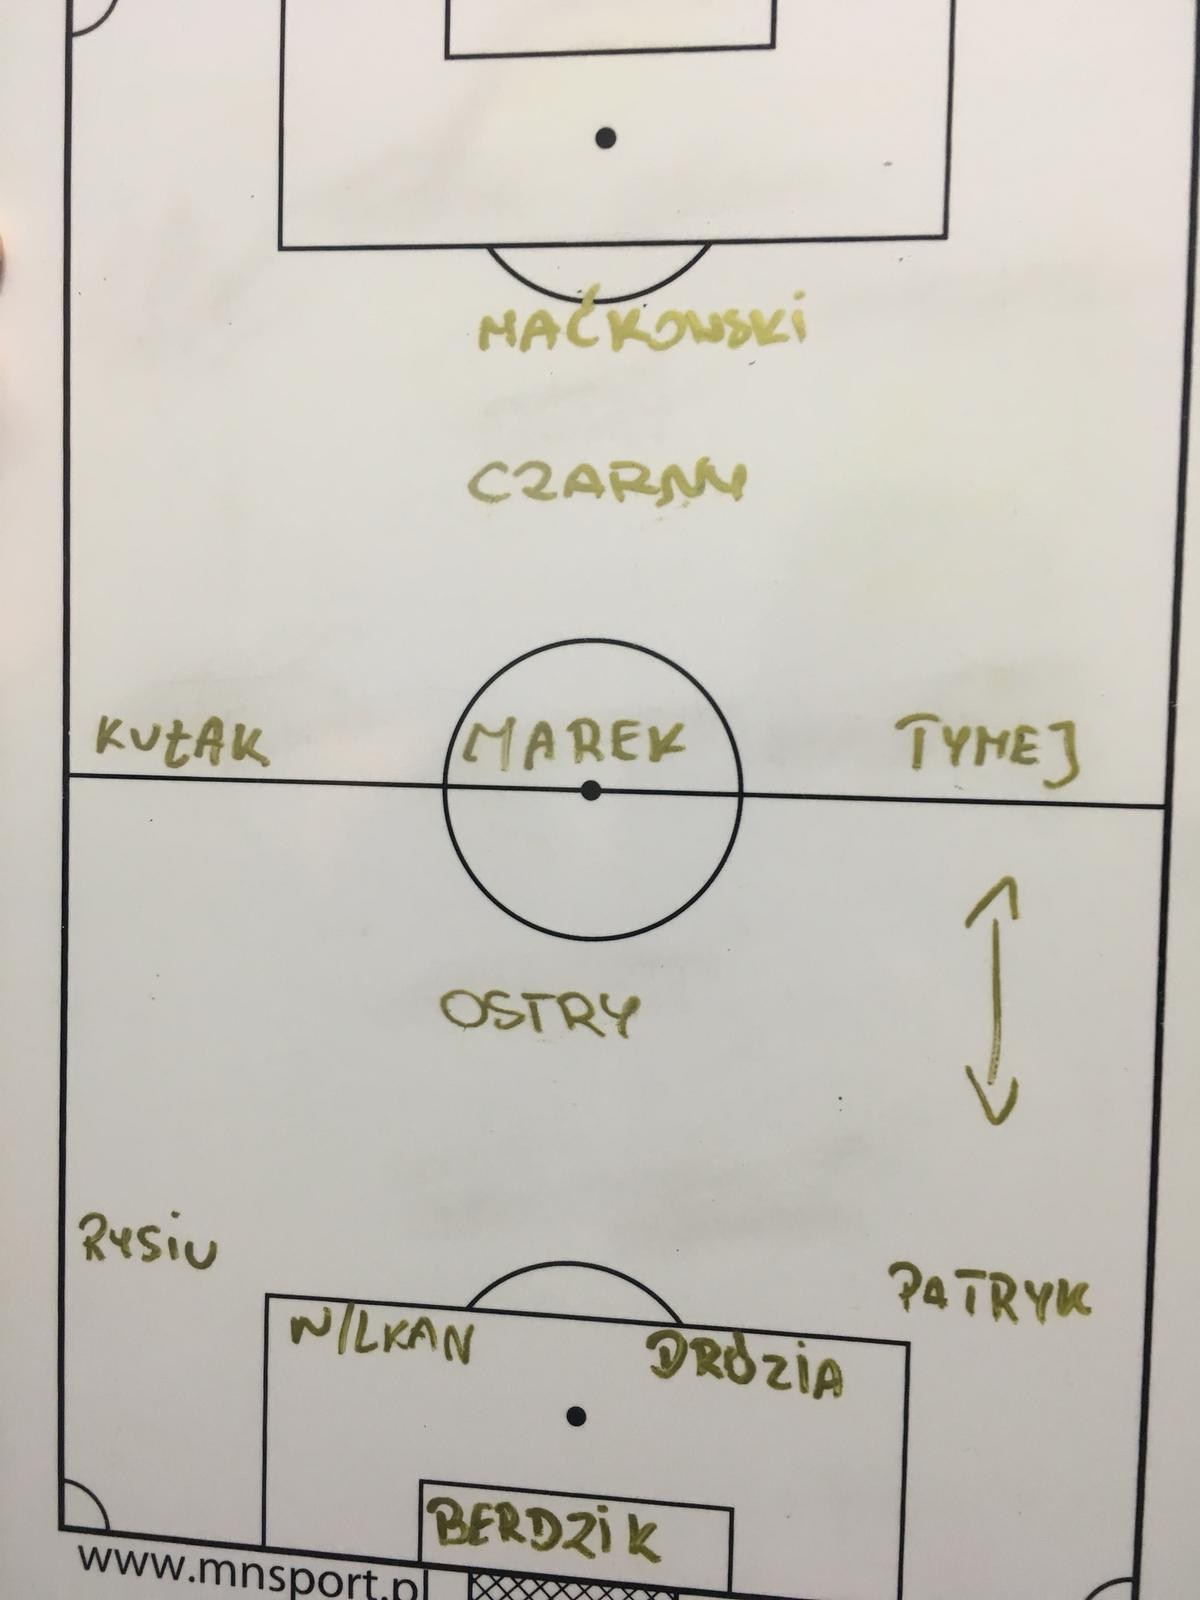 MAĆKOWSKI
CZARNY
KUŁAK MAREK TYMEJ
OSTRY
RYSIU
PATRYK
WILKAN DRÓZIA
BERDZIK
www.mnsport.pl